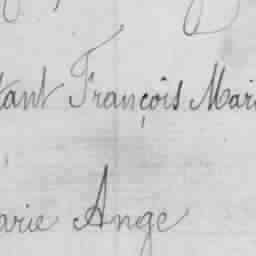 tant François Mari
arie Ange